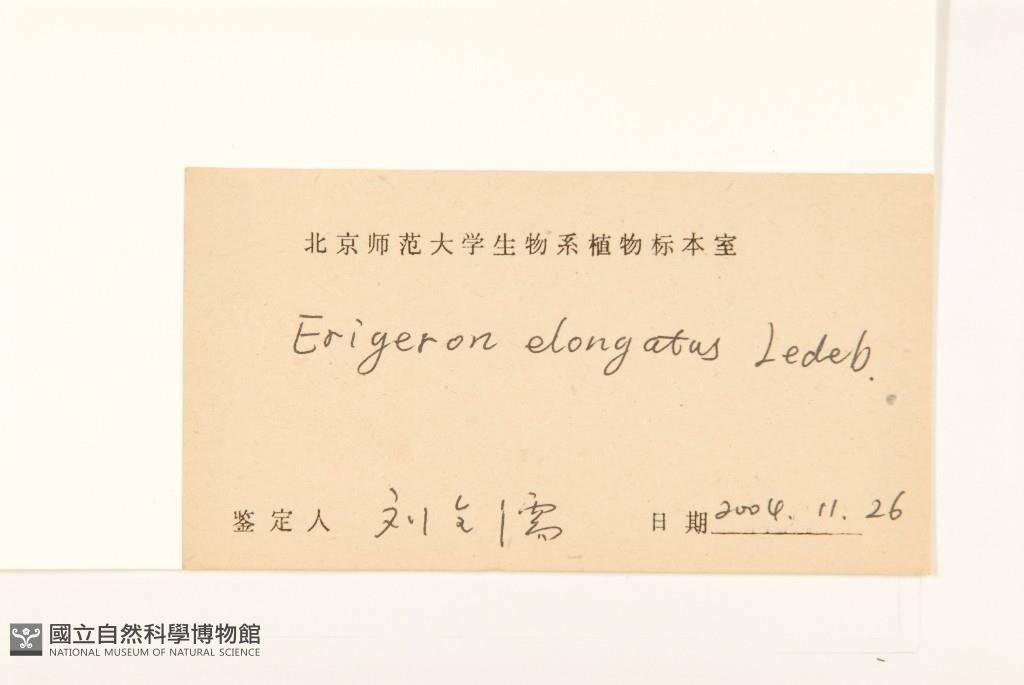 北京师范大学生物系植物标本室
Erigeron elongatus Ledeb.
鉴定人 刘全儒 日期 2004. 11. 26
國立自然科學博物館
NATIONAL MUSEUM OF NATURAL SCIENCE